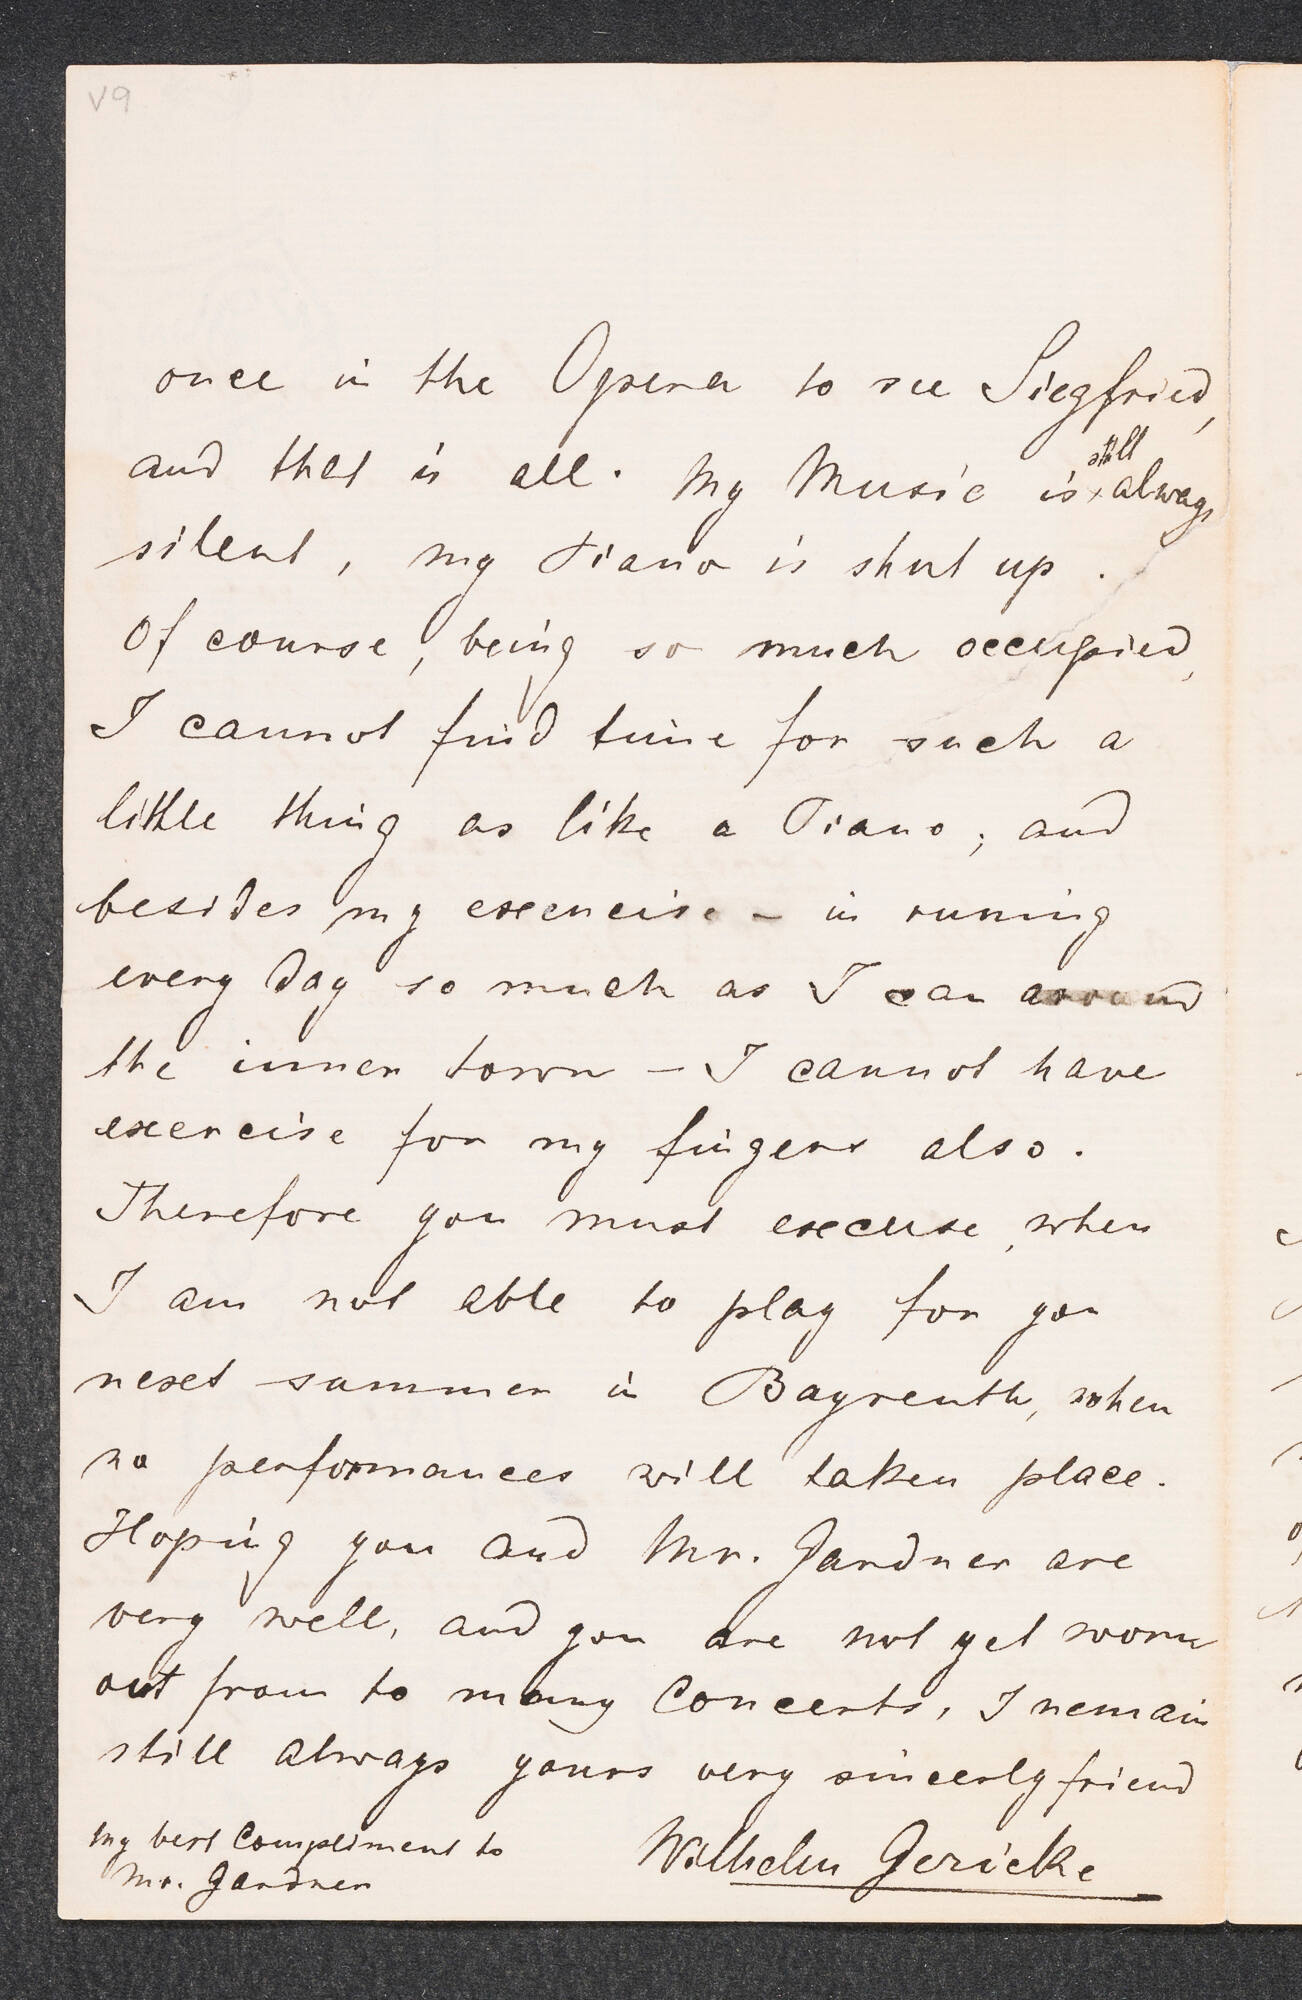 V9
once in the Opera to see Siegfried,
and that is all. My Music is still always
silent, my Piano is shut up.
Of course, being so much occupied,
I cannot find time for such a
little thing as like a Piano; and
besides my exercise - in runing
every day so much as I can around
the inner town - I cannot have
exercise for my fingers also.
Therefore you must excuse, when
I am not able to play for you
next summer in Bayreuth, when
no performances will taken place.
Hoping you and Mr. Gardner are
very well, and you are not yet worn
out from to many Concerts, I remain
still always yours very sincerly friend
Wilhelm Gericke
My best Compliment to
Mr. Gardner